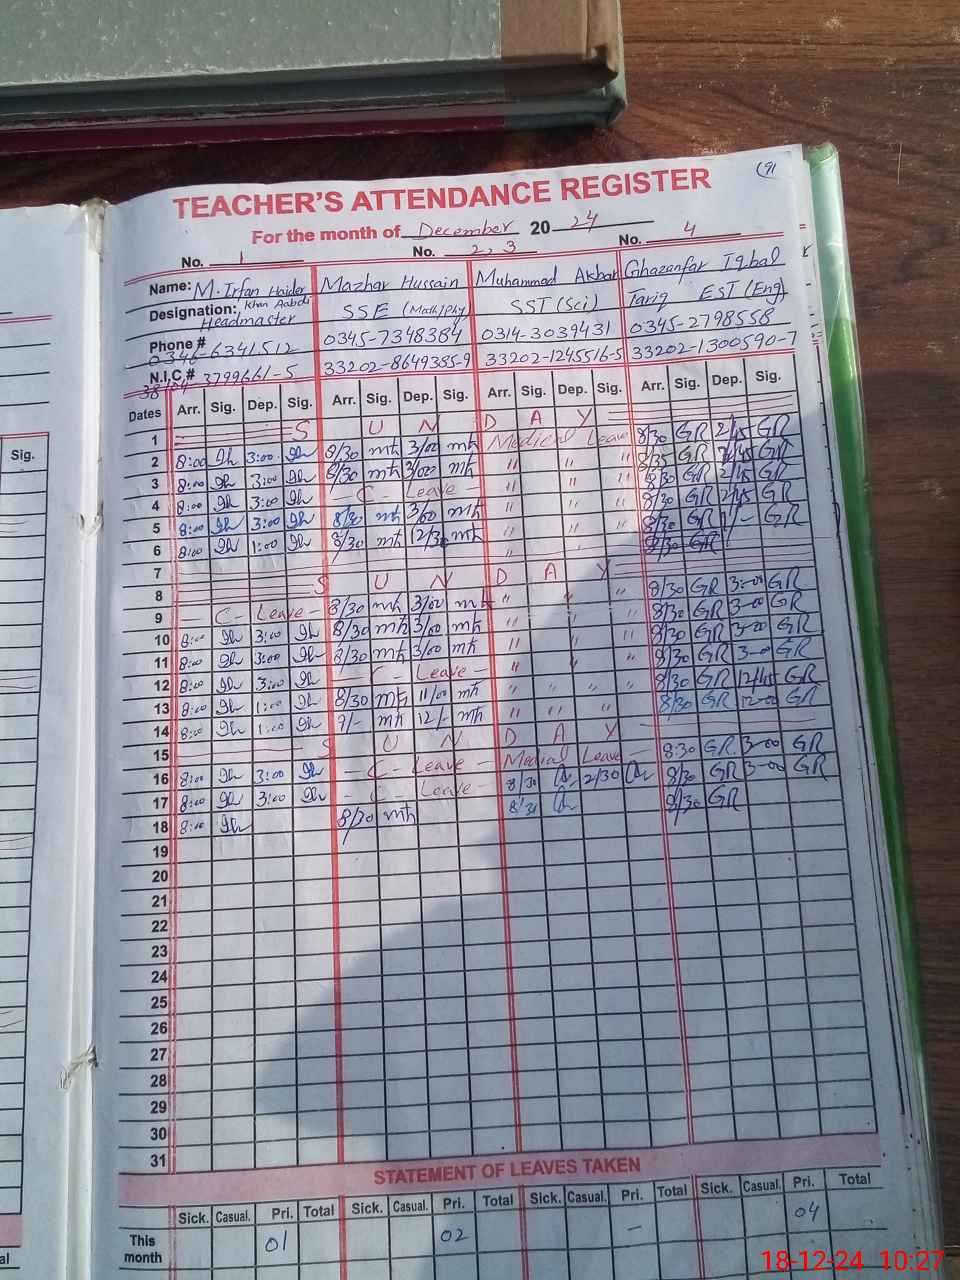 (91
TEACHER'S ATTENDANCE REGISTER
For the month of December 20 24
No. 1 No. 2, 3 No. 4
Name: M. Irfan Haider Mazhar Hussain Muhammad Akbar Ghazanfar Iqbal
Khan
Designation: Headmaster SSE (Math|Phy) SST (Sci) Tariq EST (Eng)
Phone # 0346-6341512 0345-7348384 0314-3039431 0345-2798558
N.I.C# 38104 3799661-5 33202-8649385-9 33202-1245516-5 33202-1300590-7
Dates Arr. Sig. Dep. Sig. Arr. Sig. Dep. Sig. Arr. Sig. Dep. Sig. Arr. Sig. Dep. Sig.
Sig.
1 S U N D A Y
2 8:00 3:00 8/30 mh 3/00 mh Medical Leave 8/30 GR 2/45 GR
3 8:00 3:00 8/30 mh 3/00 mh " " " 8/35 GR 2/45 GR
4 8:00 3:00 - C - Leave - " " " 8/30 GR 2/45 GR
5 8:00 3:00 8/30 mh 3/00 mh " " " 8/30 GR 2/45 GR
6 8:00 1:00 8/30 mh 12/30 mh " " " 8/30 GR 1/- GR
7 " " " 8/30 GR
8 S U N D A Y
9 - C - Leave - 8/30 mh 3/00 mh " " " 8/30 GR 3-00 GR
10 8:00 3:00 8/30 mh 3/00 mh " " " 8/30 GR 3-00 GR
11 8:00 3:00 8/30 mh 3/00 mh " " " 8/30 GR 3-00 GR
12 8:00 3:00 - C - Leave - " " " 8/30 GR 3-00 GR
13 8:00 1:00 8/30 mh 11/00 mh " " " " 8/30 GR 12/45 GR
14 8:00 1:00 9/- mh 12/- mh " " " " 8/30 GR 12-00 GR
15 S U N D A Y
16 8:00 3:00 - C - Leave - Medial Leave - 8:30 GR. 3-00 GR
17 8:00 3:00 - C - Leave - 8/30 2/30 8/30 GR 3-00 GR
18 8:00 8/30 mh 8/31 8/30 GR
19
20
21
22
23
24
25
26
27
28
29
30
31
STATEMENT OF LEAVES TAKEN
Sick. Casual. Pri. Total Sick. Casual. Pri. Total Sick. Casual. Pri. Total Sick. Casual. Pri. Total
This month 01 02 - 04
al
18-12-24 10:27